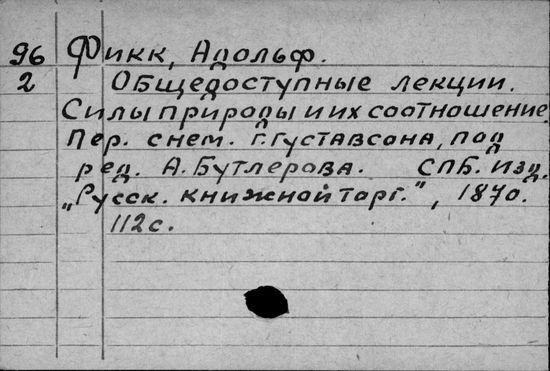 96 Фикк, Адольф.
2 Общедоступные лекции.
Силы природы и их соотношение.
Пер. с нем. Г. Густавсона, под
ред. А. Бутлерова. СПБ. Изд.
„Русск. книжной торг.", 1870.
112 с.